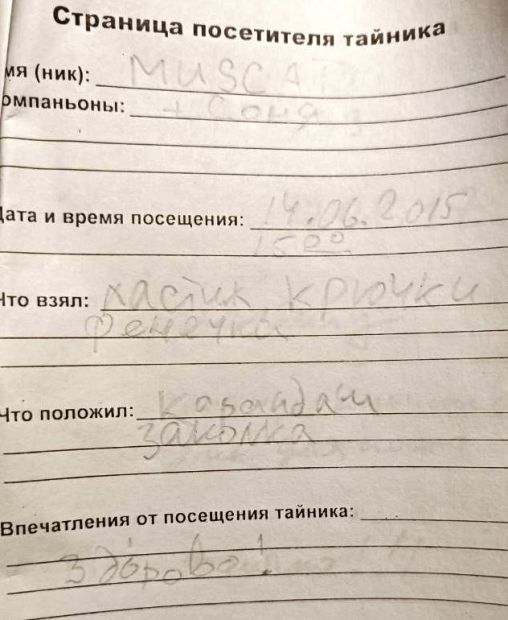 Страница посетителя тайника
мя (ник): MUSCAT
омпаньоны: + Соня
Дата и время посещения: 14.06.2015
15 00
Что взял: ластик, крючки
фенечка
Что положил: карандаш
заколка
Впечатления от посещения тайника:
здорово!